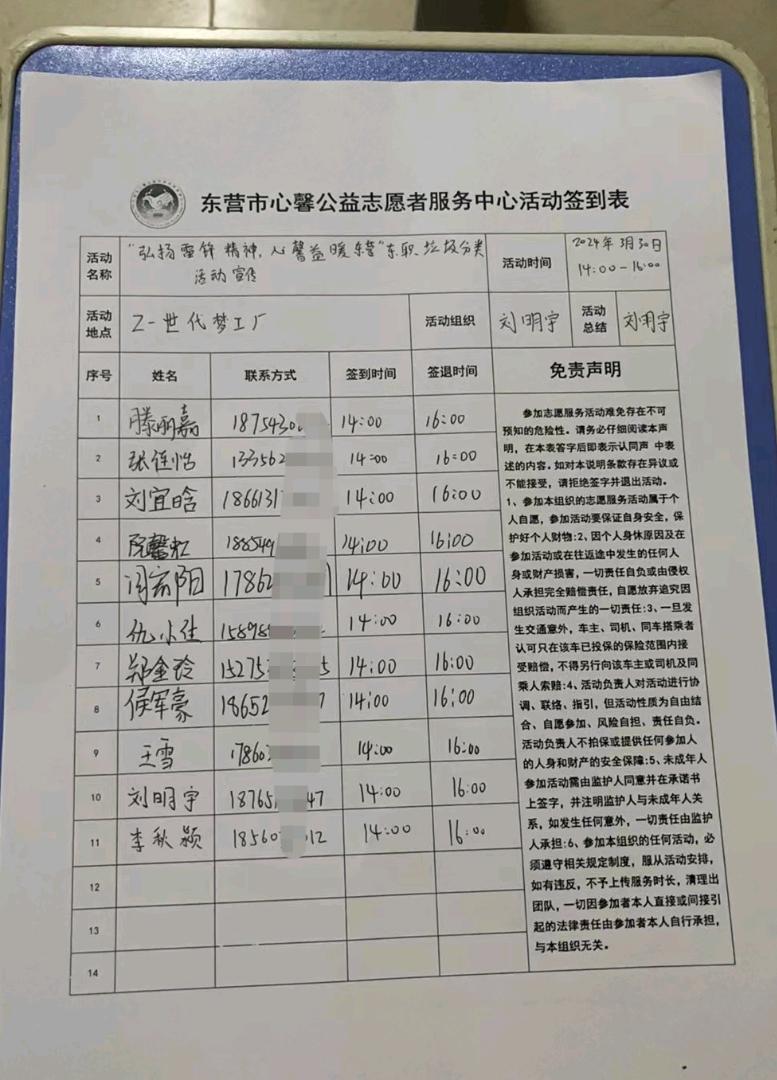 东营市心馨公益志愿者服务中心活动签到表
活动名称 "弘扬雷锋精神,心馨益暖东营"东职垃圾分类
活动宣传
活动时间 2024年3月30日
14:00-16:00
活动地点 Z-世代梦工厂 活动组织 刘明宇 活动总结 刘明宇
序号 姓名 联系方式 签到时间 签退时间 免责声明
1 滕丽嘉 1875430 14:00 16:00
2 张佳怡 133562 14:00 16:00
3 刘宜晗 186613 14:00 16:00
4 阮馨虹 188549 14:00 16:00
5 闫家阳 17862 14:00 16:00
6 仇小佳 15898 14:00 16:00
7 郑金玲 15275 5 14:00 16:00
8 侯军豪 18652 7 14:00 16:00
9 王雪 17860 14:00 16:00
10 刘明宇 18765 47 14:00 16:00
11 李秋颍 18560 12 14:00 16:00
12
13
14
参加志愿服务活动难免存在不可
预知的危险性。请务必仔细阅读本声
明,在本表签字后即表示认同声 中表
述的内容。如对本说明条款存在异议或
不能接受,请拒绝签字并退出活动。
1、参加本组织的志愿服务活动属于个
人自愿,参加活动要保证自身安全,保
护好个人财物:2、因个人身休原因及在
参加活动或在往返途中发生的任何人
身或财产损害,一切责任自负或由侵权
人承担完全赔偿责任,自愿放弃追究因
组织活动而产生的一切责任:3、一旦发
生交通意外,车主、司机、同车搭乘者
认可只在该车已投保的保险范围内接
受赔偿,不得另行向该车主或司机及同
乘人索赔:4、活动负责人对活动进行协
调、联络、指引,但活动性质为自由结
合、自愿参加、风险自担、责任自负。
活动负责人不拍保或提供任何参加人
的人身和财产的安全保障:5、未成年人
参加活动需由监护人同意并在承诺书
上签字,并注明监护人与未成年人关
系,如发生任何意外,一切责任由监护
人承担:6、参加本组织的任何活动,必
须遵守相关规定制度,服从活动安排,
如有违反,不予上传服务时长,清理出
团队,一切因参加者本人直接或间接引
起的法律责任由参加者本人自行承担,
与本组织无关。